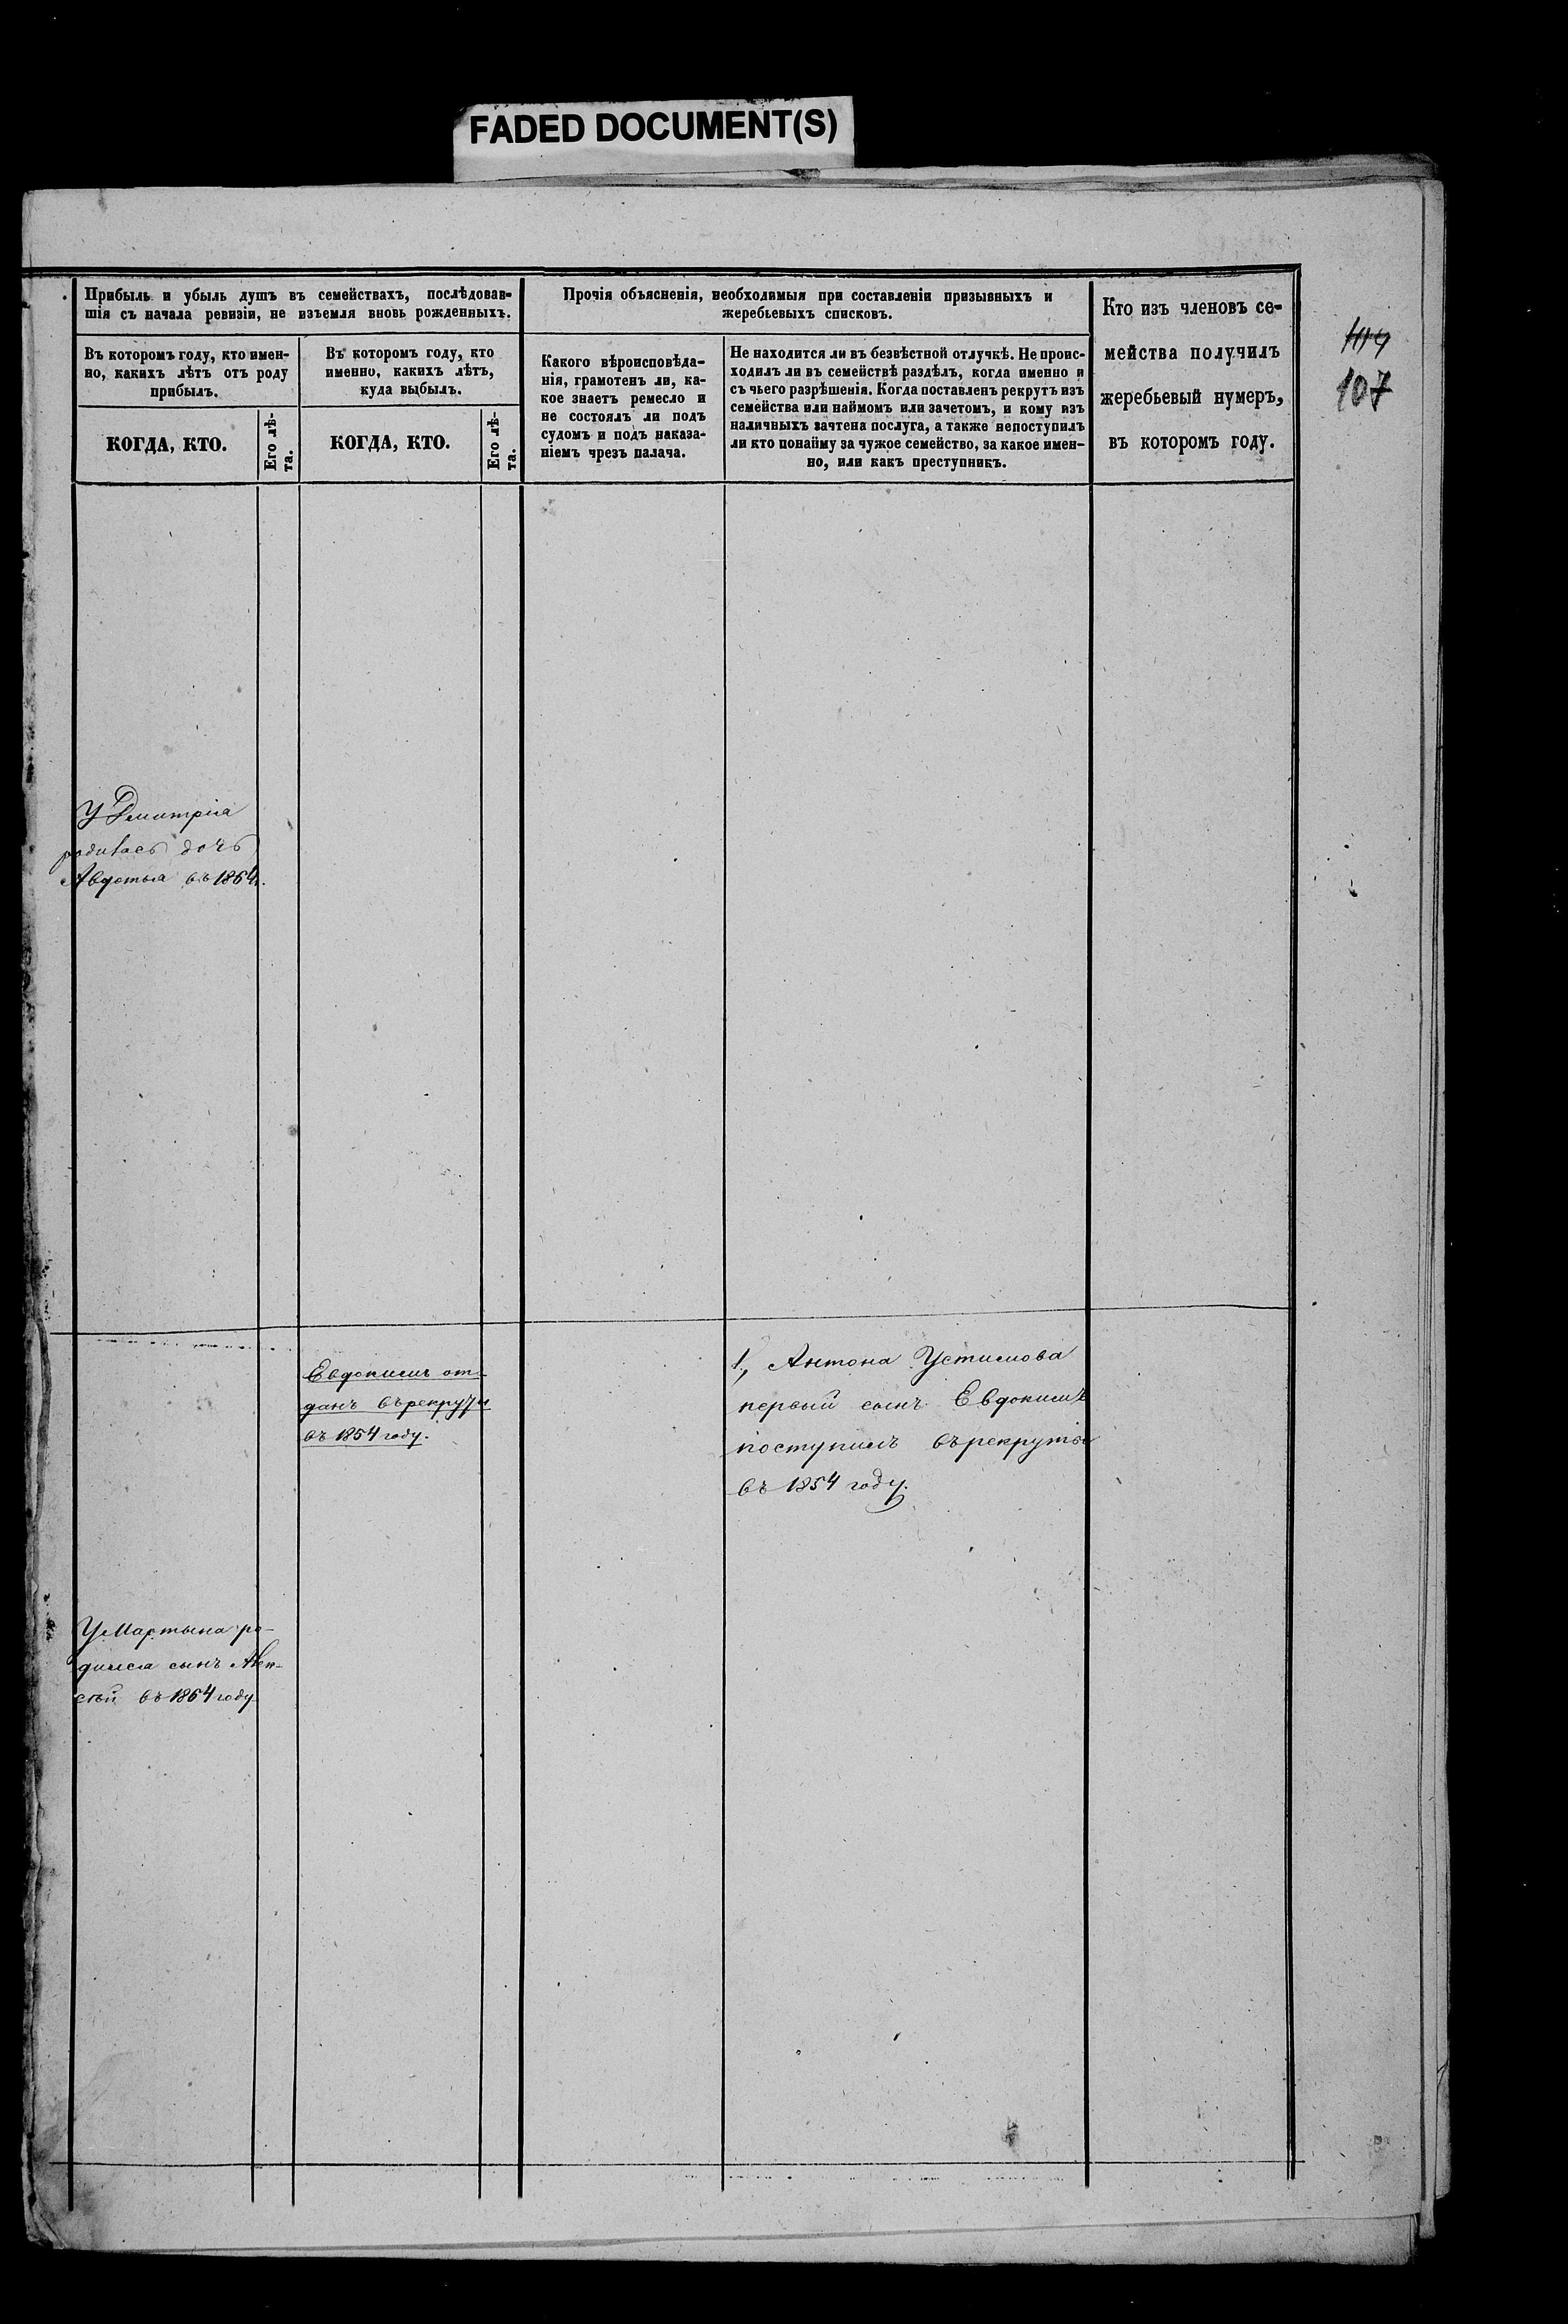 FADED DOCUMENT(S)
Прибыль и убыль душъ въ семействахъ, послѣдовав-
шія съ начала ревизіи, не изъемля вновь рожденныхъ.
Въ которомъ году, кто имен-
но, какихъ лѣтъ отъ роду
прибылъ.
КОГДА, КТО.
Его лѣ-
та.
Въ которомъ году, кто
именно, какихъ лѣтъ,
куда выбылъ.
КОГДА, КТО.
Его лѣ-
та.
Прочія объясненія, необходимыя при составленіи призывныхъ и
жеребьевыхъ списковъ.
Какого вѣроисповѣда-
нія, грамотенъ ли, ка-
кое знаетъ ремесло и
не состоялъ ли подъ
судомъ и подъ наказа-
ніемъ чрезъ палача.
Не находится ли въ безвѣстной отлучкѣ. Не проис-
ходилъ ли въ семействѣ раздѣлъ, когда именно и
съ чьего разрѣшенія. Когда поставленъ рекрутъ изъ
семейства или наймомъ или зачетомъ, и кому изъ
наличныхъ зачтена послуга, а также непоступилъ
ли кто понайму за чужое семейство, за какое имен-
но, или какъ преступникъ.
Кто изъ членовъ се-
мейства получилъ
жеребьевый нумеръ,
въ которомъ году.
107
У Дмитрія
родилась дочь
Авдотья въ 1864г.
Евдокимъ от-
данъ въ рекруты
въ 1854 году.
1, Антона Устимова
первый сынъ Евдокимъ
поступилъ въ рекруты
въ 1854 году.
У Мартына ро-
дился сынъ Алек-
сѣй въ 1864 году